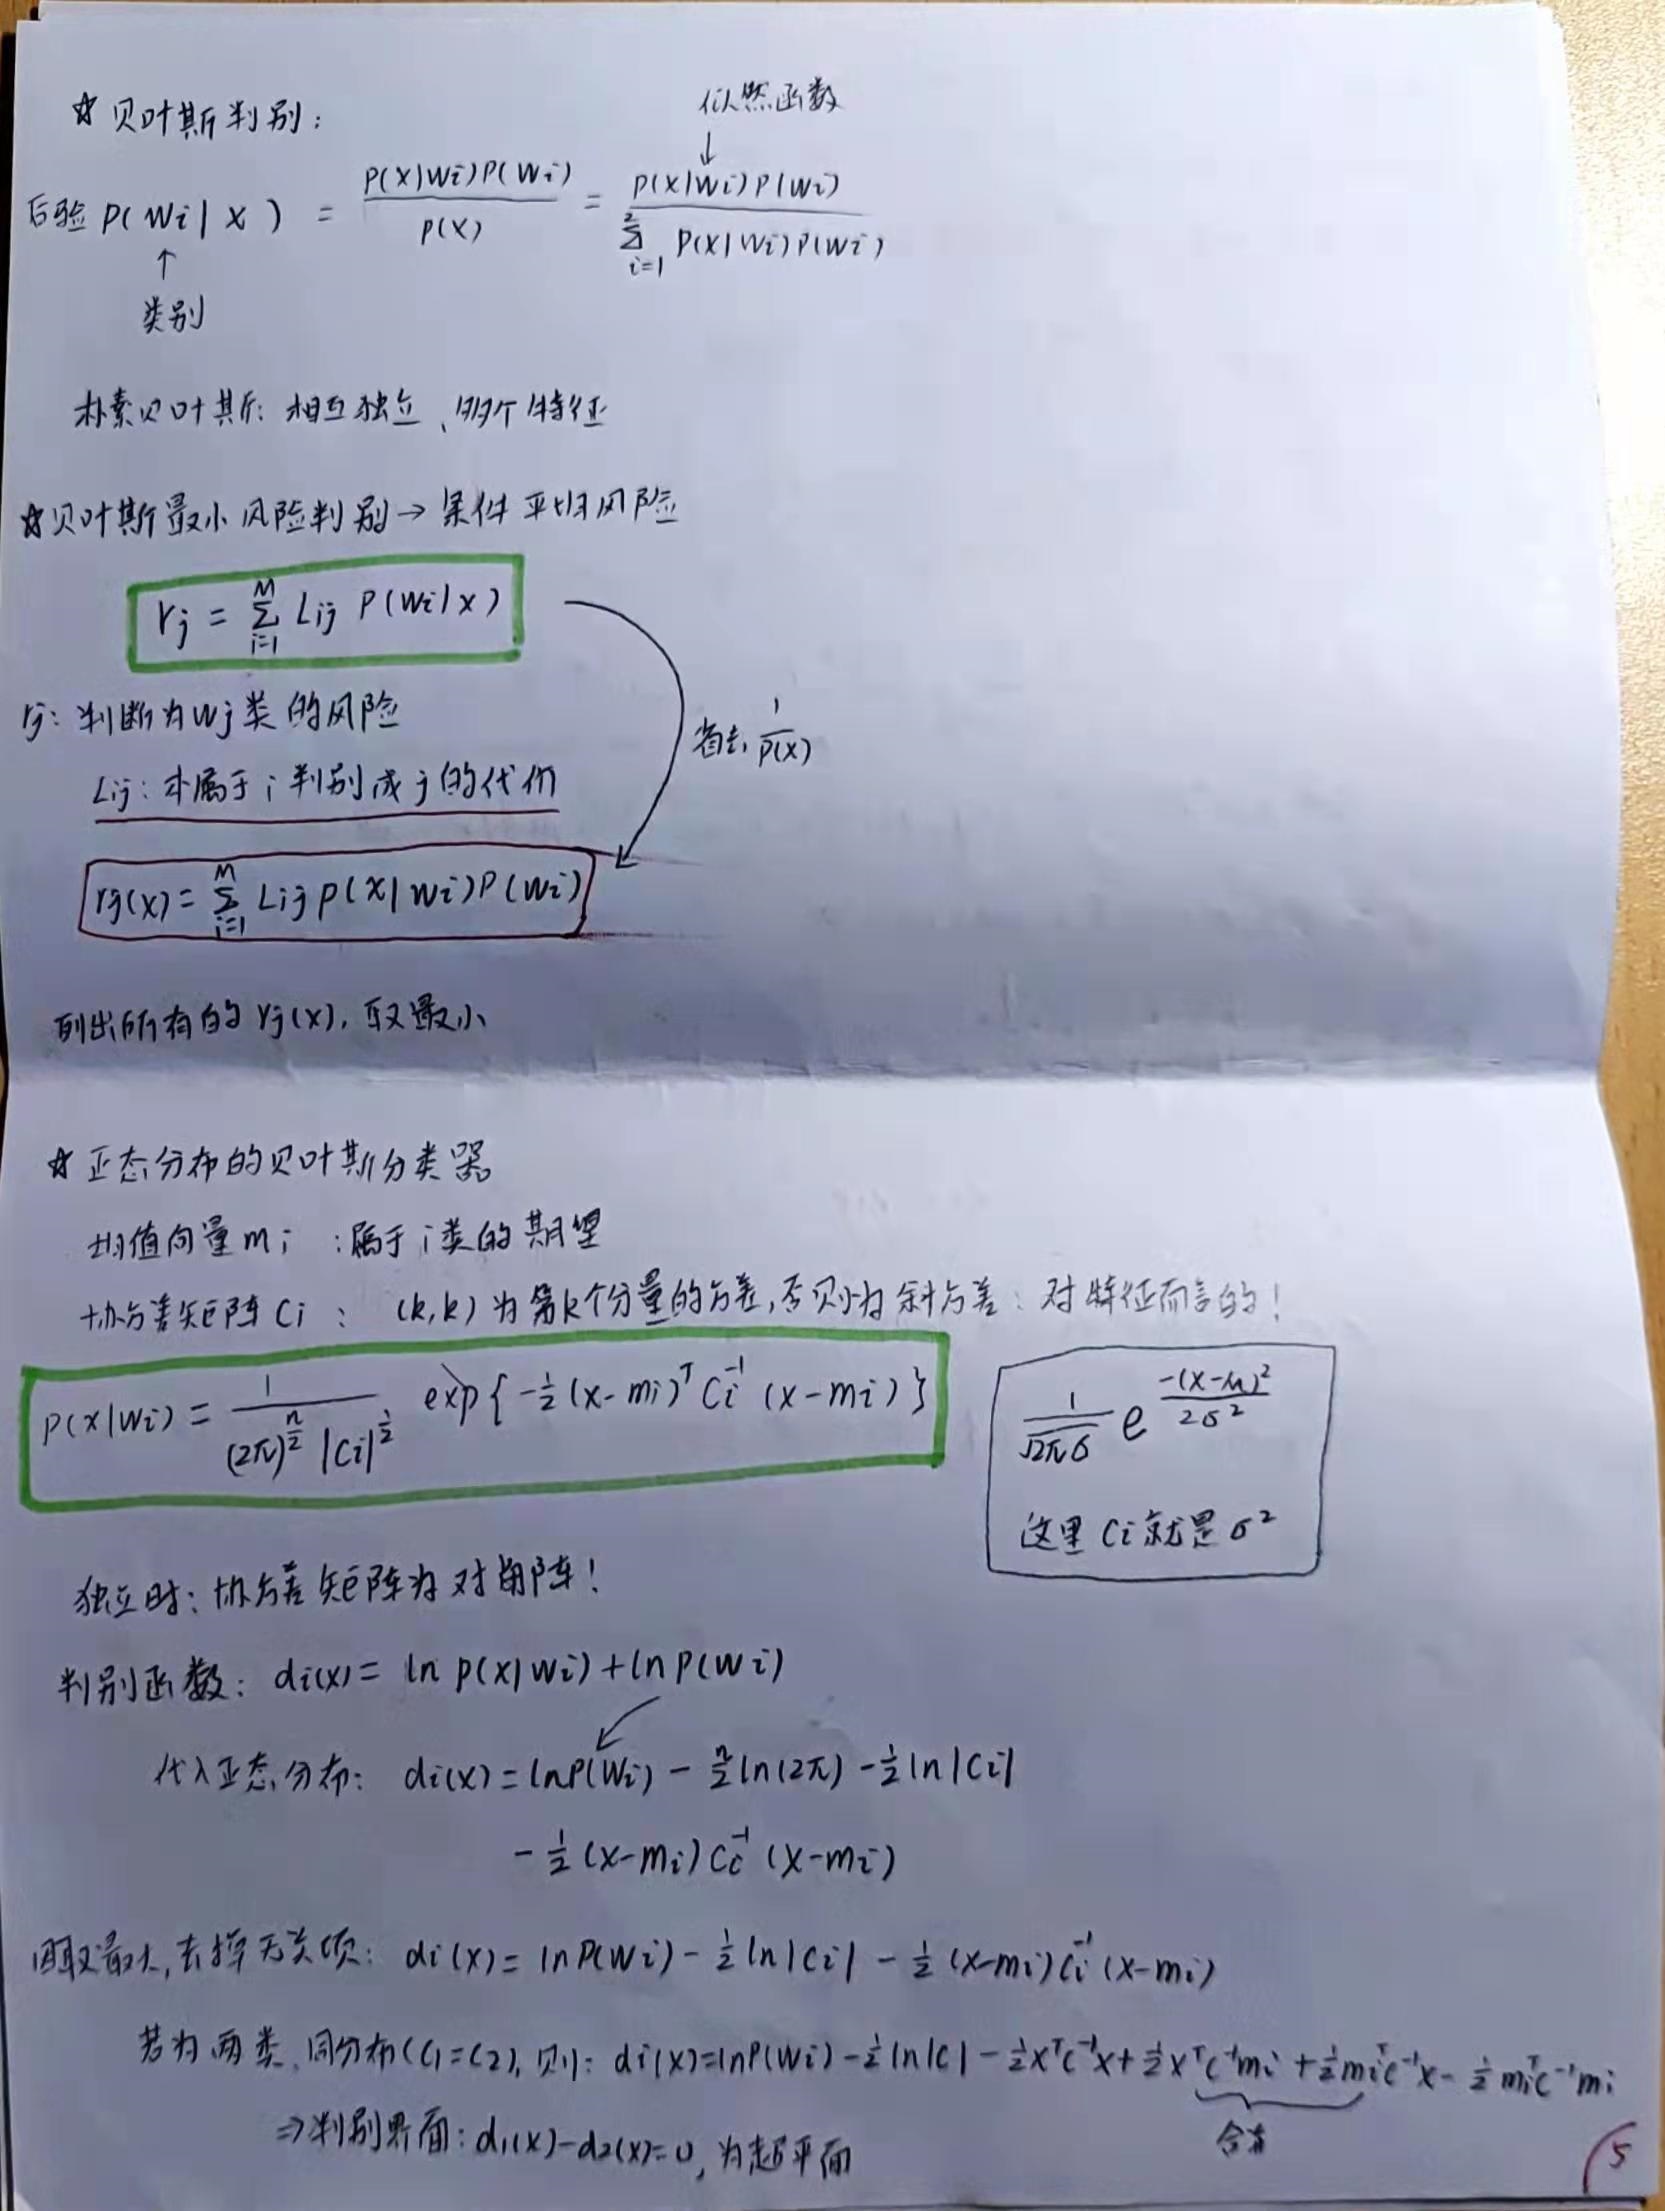 似然函数
↓
☆ 贝叶斯判别：
后验 P(Wi|X) = P(X|Wi)P(Wi) / P(X) = P(X|Wi)P(Wi) / ∑_{i=1}^{2} P(X|Wi)P(Wi)
↑
类别
朴素贝叶斯：相互独立、 特征
☆贝叶斯最小风险判别→条件平均风险
rj = ∑_{i=1}^{M} Lij P(Wi|x)
rj：判断为wj类的风险
省去 1/P(X)
Lij：本属于i判别成j的代价
rj(x) = ∑_{i=1}^{M} Lij P(X|Wi)P(Wi)
列出所有的rj(x)，取最小
☆ 正态分布的贝叶斯分类器
均值向量mi ：属于i类的期望
协方差矩阵Ci ：(k,k)为第k个分量的方差，否则为斜方差：对特征而言的！
P(X|Wi) = 1 / ((2π)^{n/2} |Ci|^{1/2}) exp{-½(x-mi)^T Ci^{-1} (x-mi)}
1/√2πσ e^{-(x-μ)²/2σ²}
这里Ci就是σ²
独立时：协方差矩阵为对角阵！
判别函数：di(x) = ln P(X|Wi) + ln P(Wi)
代入正态分布：di(x) = lnP(Wi) - n/2 ln(2π) - ½ ln|Ci|
- ½ (x-mi) Ci^{-1} (x-mi)
因取最大，去掉无关项：di(x) = lnP(Wi) - ½ ln|Ci| - ½ (x-mi) Ci^{-1} (x-mi)
若为两类，同分布(C1=C2)，则：di(x)=lnP(Wi) - ½ ln|C| - ½x^T C^{-1} x + ½x^T C^{-1} mi + ½mi^T C^{-1} x - ½ mi^T C^{-1} mi
合并
⇒判别界面：d1(x)-d2(x)=0，为超平面
5